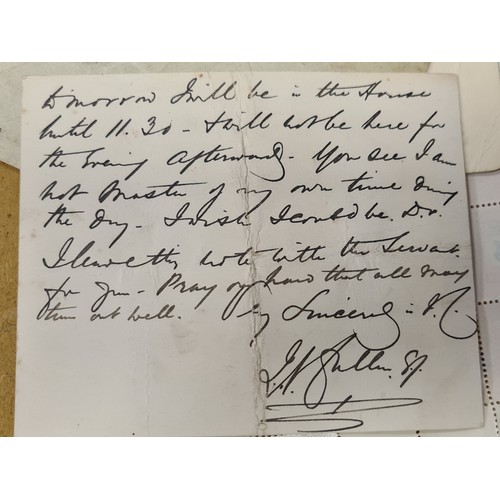 tomorrow I will be in the House
until 11.30 - I will not be here for
the Evening afterwards. You see I am
not Master of my own time during
the day. I wish I could be. D.V.
I leave this note with the Servant
for you - Pray hard that all may
turn out well. Sincerely in